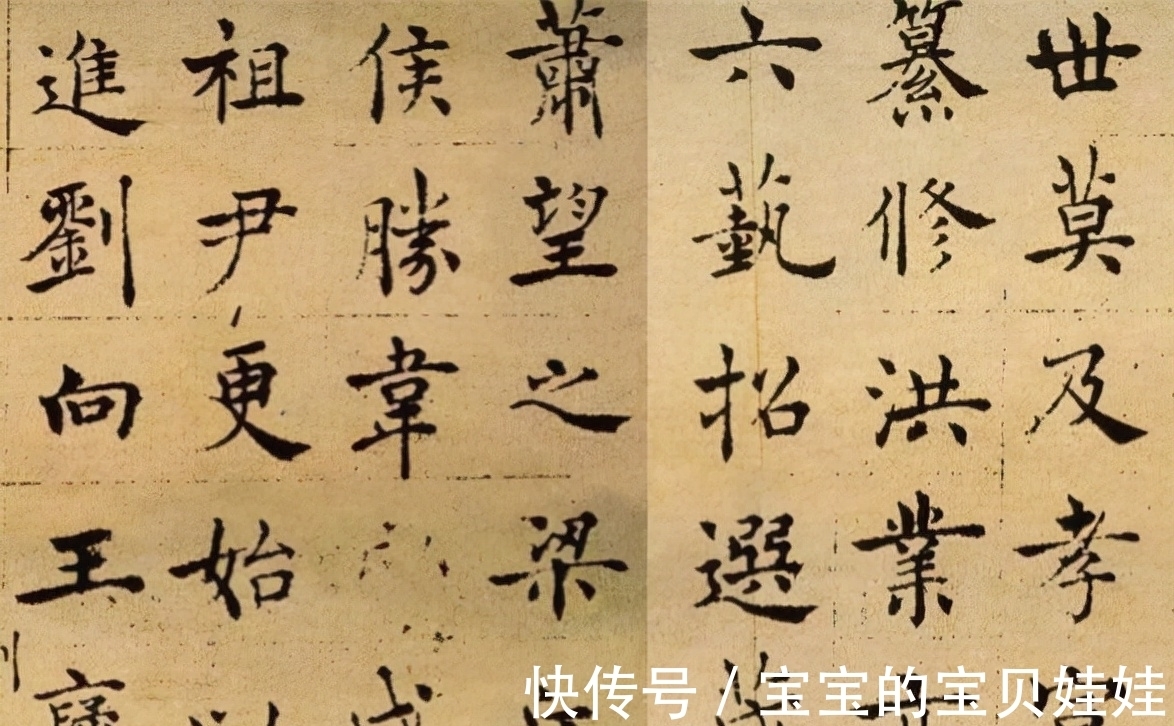 世莫及孝
纂修洪業
六藝招選
蕭望之梁
侯勝韋
祖尹更始
進劉向王
快传号 / 宝宝的宝贝娃娃